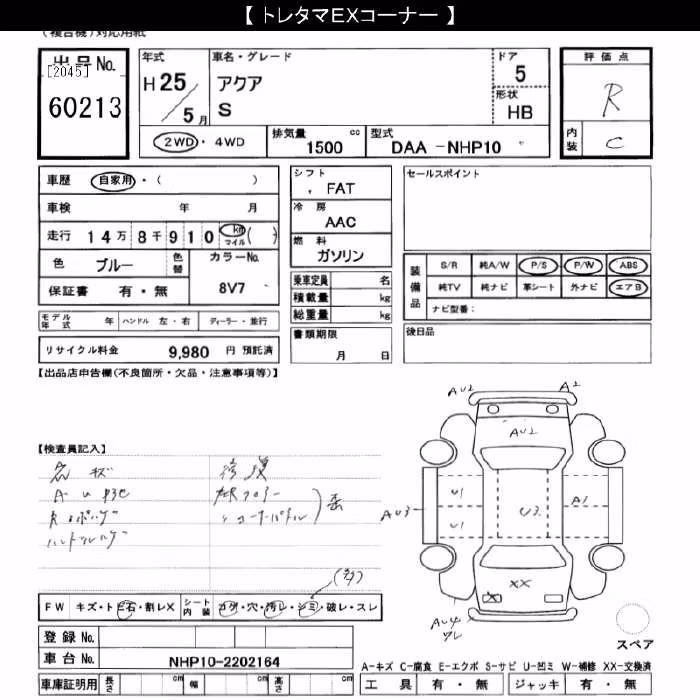 【 トレタマEXコーナー 】
(複合機)対応用紙
出品No.
[2045]
60213
年式
H 25
5月
車名・グレード
アクア
S
ドア
5
形状
HB
2WD・4WD
排気量
cc
1500
型式
DAA -NHP10
評価点
R
内装
C
車歴
自家用・( )
車検 年 月
走行
14万8千910 km マイル( )
色
ブルー
色替
カラーNo.
8V7
保証書 有・無
モデル年式 年 ハンドル 左・右 ディーラー・並行
リサイクル料金 9,980 円 預託済
シフト
FAT
冷房
AAC
燃料
ガソリン
乗車定員 名
積載量 kg
総重量 kg
書類期限
月 日
セールスポイント
装備品
S/R 純A/W P/S P/W ABS
純TV 純ナビ 革シート 外ナビ エアB
ナビ型番:
後日品
【出品店申告欄(不良箇所・欠品・注意事項等)】
【検査員記入】
AU2
A2
AU2
AU3
U1
U1
U3
A1
XX
X
AU4
ワレ
(多)
FW キズ・ト・ビ石・割レX シート内装 コゲ・穴・汚レ・シミ・破レ・スレ
登録No.
車台No. NHP10-2202164
車庫証明用 長さ cm 幅 cm 高さ cm
スペア
A-キズ C-腐食 E-エクボ S-サビ U-凹ミ W-補修 XX-交換済
工具 有・無 ジャッキ 有・無